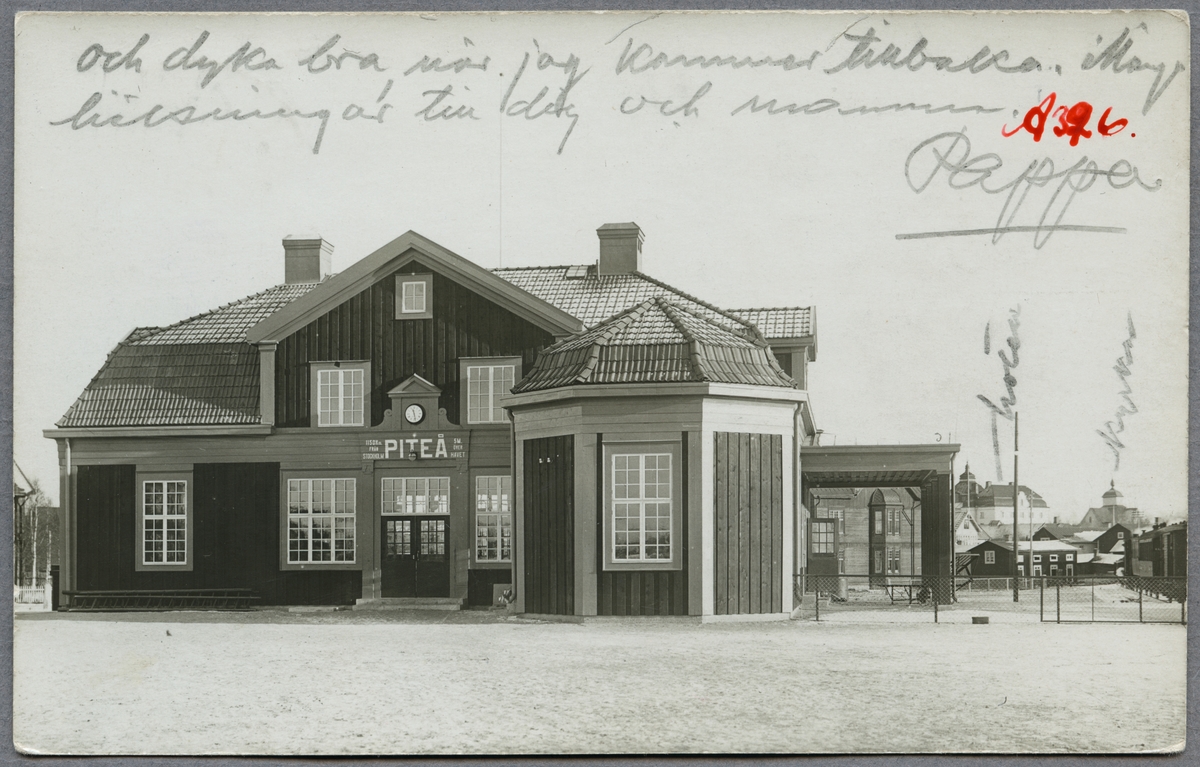 och dyka bra, när jag kommer tillbaka. Många
hälsningar till dig och mamma.
A326.
Pappa
skolan
kyrkan
PITEÅ
FRÅN
STOCKHOLM
3 M.
ÖVER
HAVET